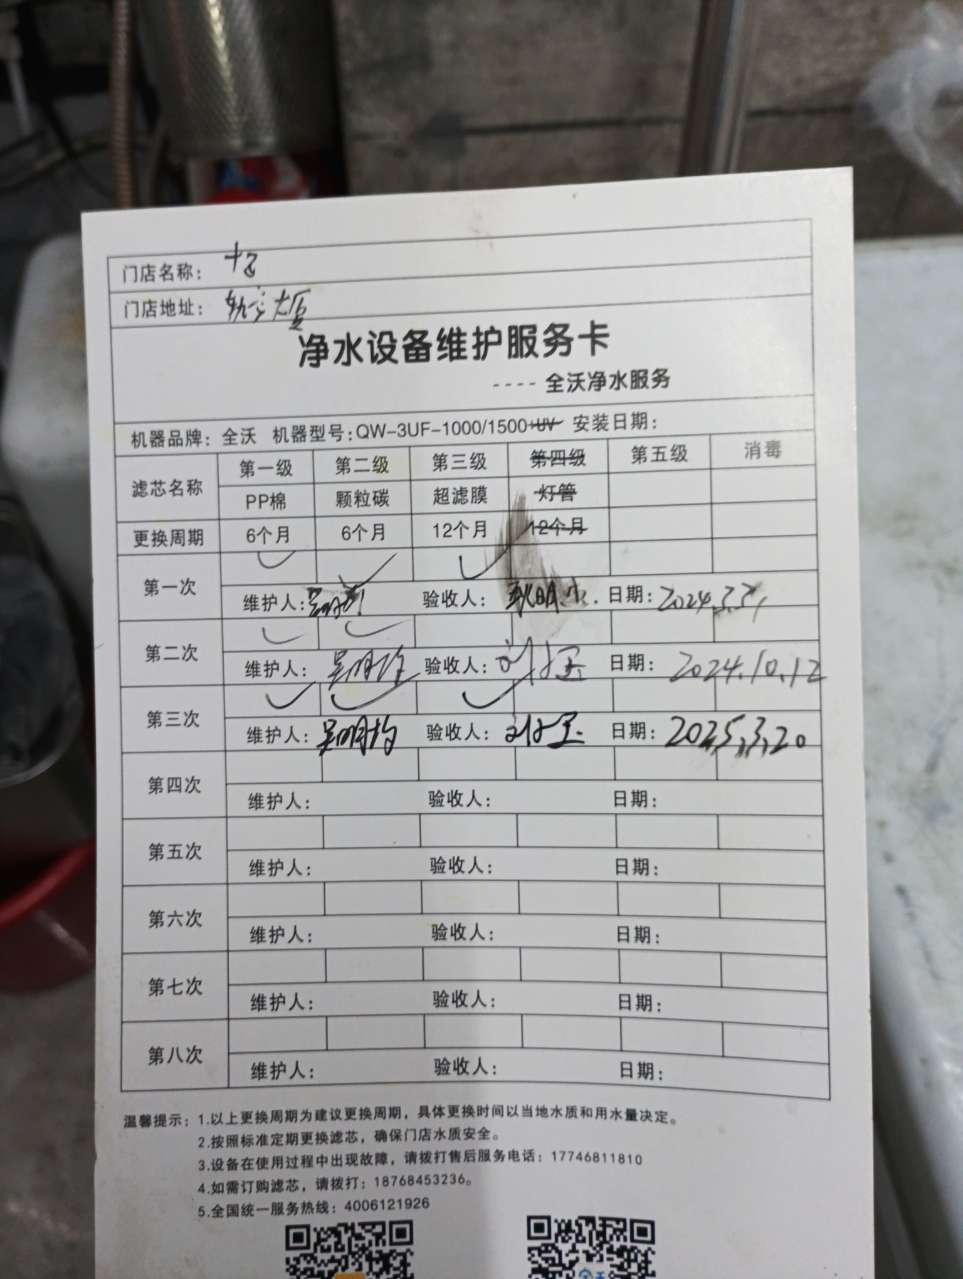 门店名称：
门店地址： 大厦
净水设备维护服务卡
---- 全沃净水服务
机器品牌：全沃 机器型号：QW-3UF-1000/1500+UV 安装日期：
滤芯名称 第一级 第二级 第三级 第四级 第五级 消毒
PP棉 颗粒碳 超滤膜 灯管
更换周期 6个月 6个月 12个月 12个月
第一次
维护人： 验收人： 日期：
第二次
维护人： 验收人： 日期：2024.10.12
第三次
维护人： 验收人： 日期：2025.3.20
第四次
维护人： 验收人： 日期：
第五次
维护人： 验收人： 日期：
第六次
维护人： 验收人： 日期：
第七次
维护人： 验收人： 日期：
第八次
维护人： 验收人： 日期：
温馨提示：1.以上更换周期为建议更换周期，具体更换时间以当地水质和用水量决定。
2.按照标准定期更换滤芯，确保门店水质安全。
3.设备在使用过程中出现故障，请拨打售后服务电话：17746811810
4.如需订购滤芯，请拨打：18768453236。
5.全国统一服务热线：4006121926